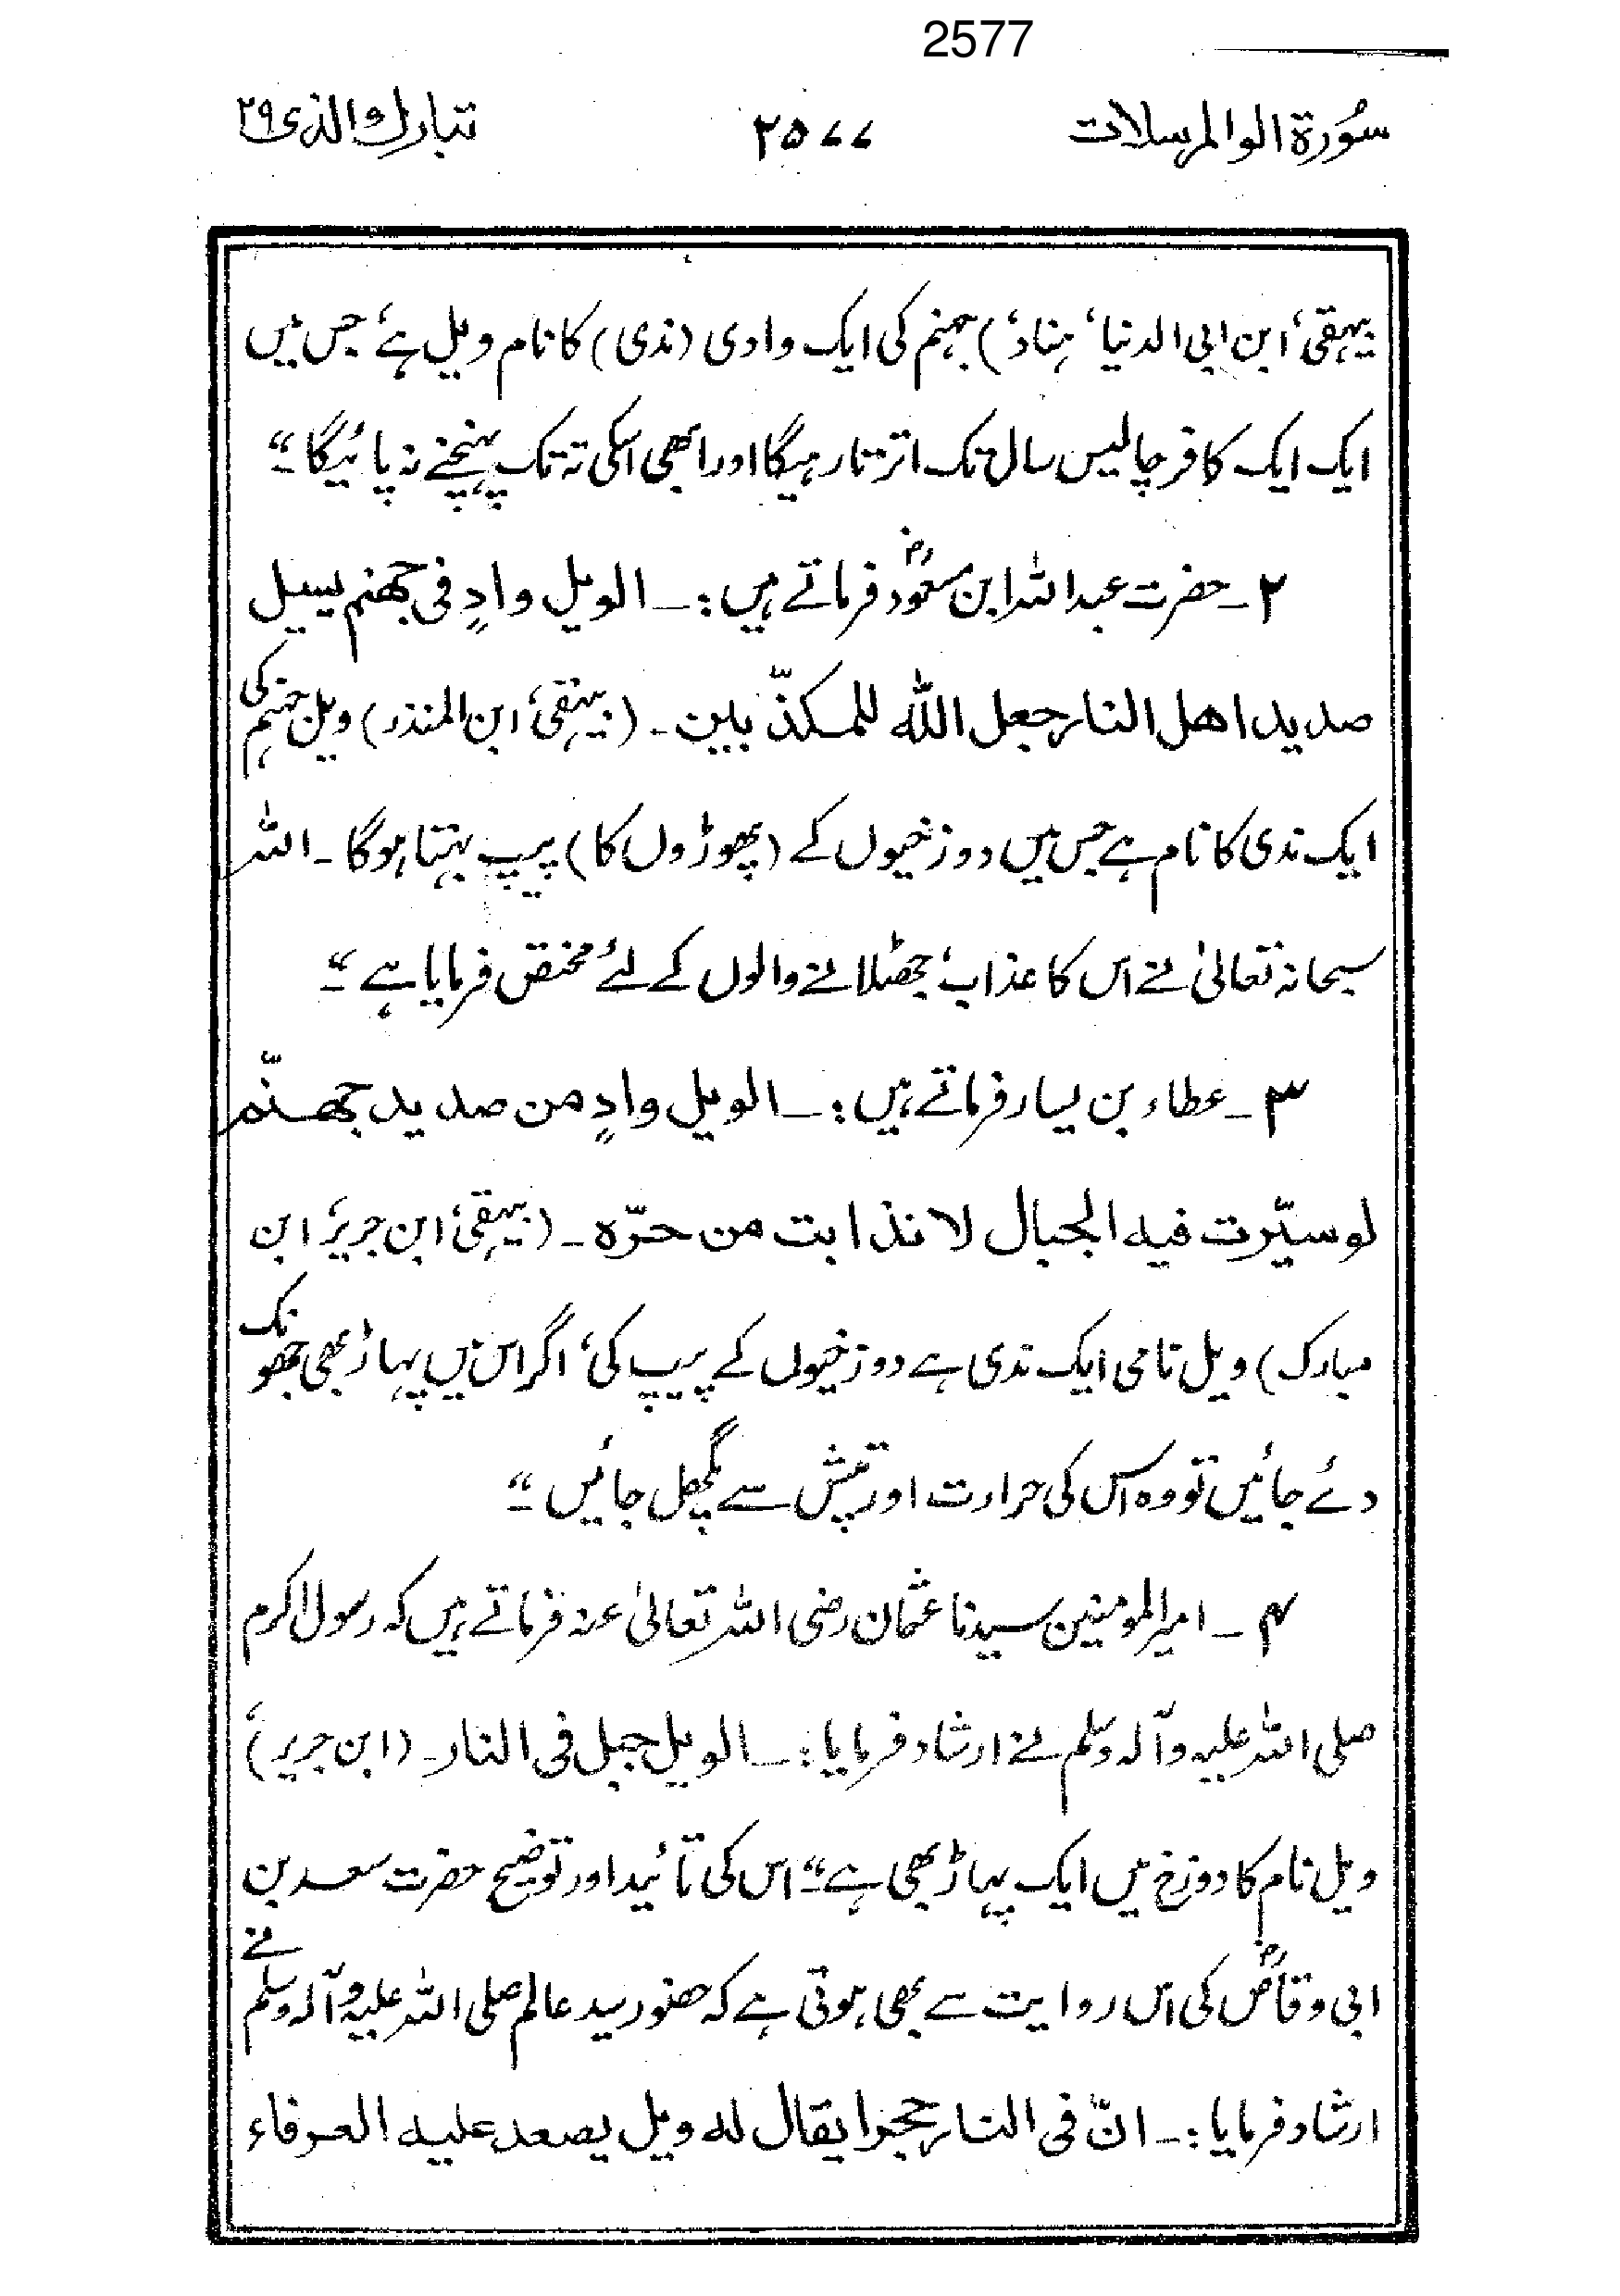 2577
سُورة الوالمرسلات ۲۵۷۷ تبارك والذی ۲۹
بیہقی، ابن ابی الدنیا، ہناد،) جہنم کی ایک وادی (ندی) کا نام ویل ہے، جس میں
ایک ایک کافر چالیس سال تک اترتا رہیگا اور ابھی اسکی تہ تک پہنچنے نہ پائیگا"
۲۔ حضرت عبداللہ ابن مسعودؓ فرماتے ہیں:۔ الویل وادٍ فی جهنم یسیل
صدید اهل النار جعل اللّٰه للمکذّبین۔ (بیہقی، ابن المنذر) ویل جہنم کی
ایک ندی کا نام ہے جس میں دوزخیوں کے (پھوڑوں کا) پیپ بہتا ہوگا۔ اللہ
سبحانہ تعالیٰ نے اس کا عذاب، جھٹلانے والوں کے لئے مختص فرمایا ہے"
۳۔ عطاء بن یسار فرماتے ہیں:۔ الویل وادٍ من صدید جهنّم
لوسیّرت فیه الجبال لانذابت من حرّہ۔ (بیہقی، ابن جریر، ابن
مبارک) ویل نامی ایک ندی ہے دوزخیوں کے پیپ کی، اگر اس میں پہاڑ بھی جھونک
دئے جائیں تو وہ اس کی حرارت اور تپش سے پگھل جائیں"
۴۔ امیر المومنین سیدنا عثمان رضی اللہ تعالیٰ عنہ فرماتے ہیں کہ رسول اکرم
صلی اللہ علیہ وآلہ وسلم نے ارشاد فرمایا:۔ الویل جبل فی النار۔ (ابن جریر،)
ویل نام کا دوزخ میں ایک پہاڑ بھی ہے" اس کی تائید اور توضیح حضرت سعد بن
ابی وقاصؓ کی اس روایت سے بھی ہوتی ہے کہ حضور سید عالم صلی اللہ علیہ وآلہ وسلم نے
ارشاد فرمایا:۔ انّ فی النار حجرا یقال له ویل یصعد علیه العرفاء